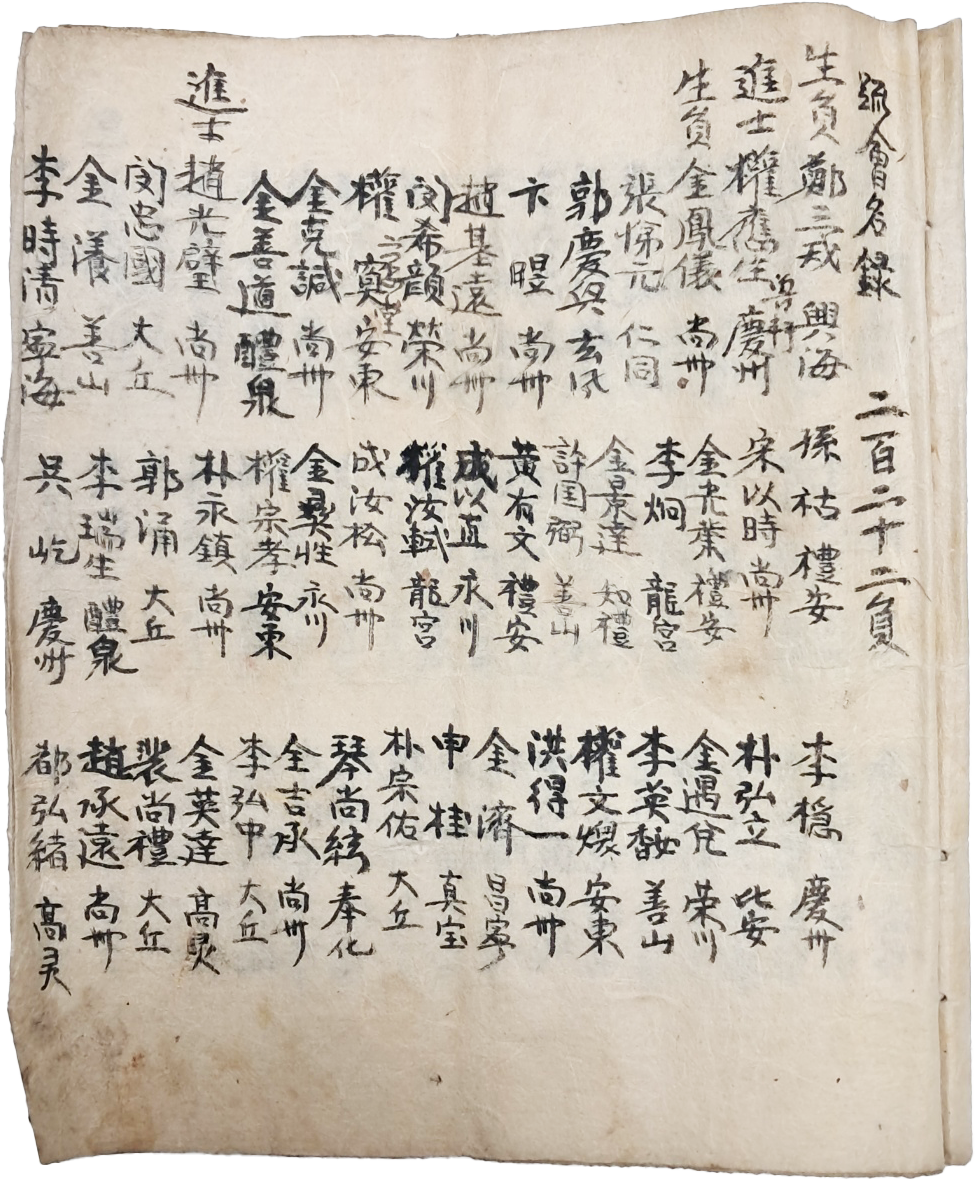 疏會名録 二百二十二員
生員 鄭三戒 興海 孫祜 禮安 李穩 慶州
進士 權應生 吾軒 慶州 宋以時 尚州 朴弘立 比安
生員 金鳳儀 尚州 金光葉 禮安 金遇兌 荣川
張悌元 仁同 李炯 龍宮 李英馥 善山
郭慶興 玄風 金景達 知禮 權文煥 安東
卞暒 尚州 許国弼 善山 洪得一 尚州
趙基遠 尚州 黃有文 禮安 金濟 昌寧
閔希顔 榮川 成以直 永川 申桂 真宝
權寞 安東 權汝軾 龍宮 朴宗佑 大丘
金克諴 尚州 成汝松 尚州 琴尚絃 奉化
金善道 醴泉 金性 永川 全吉承 尚州
進士 趙光璧 尚州 權宗孝 安東 李弘中 大丘
閔忠國 大丘 朴永鎮 尚州 金英達 髙灵
金瀁 善山 郭涌 大丘 裴尚禮 大丘
李時清 寧海 李瑞生 醴泉 趙承遠 尚州
吳屹 慶州 都弘緒 髙灵